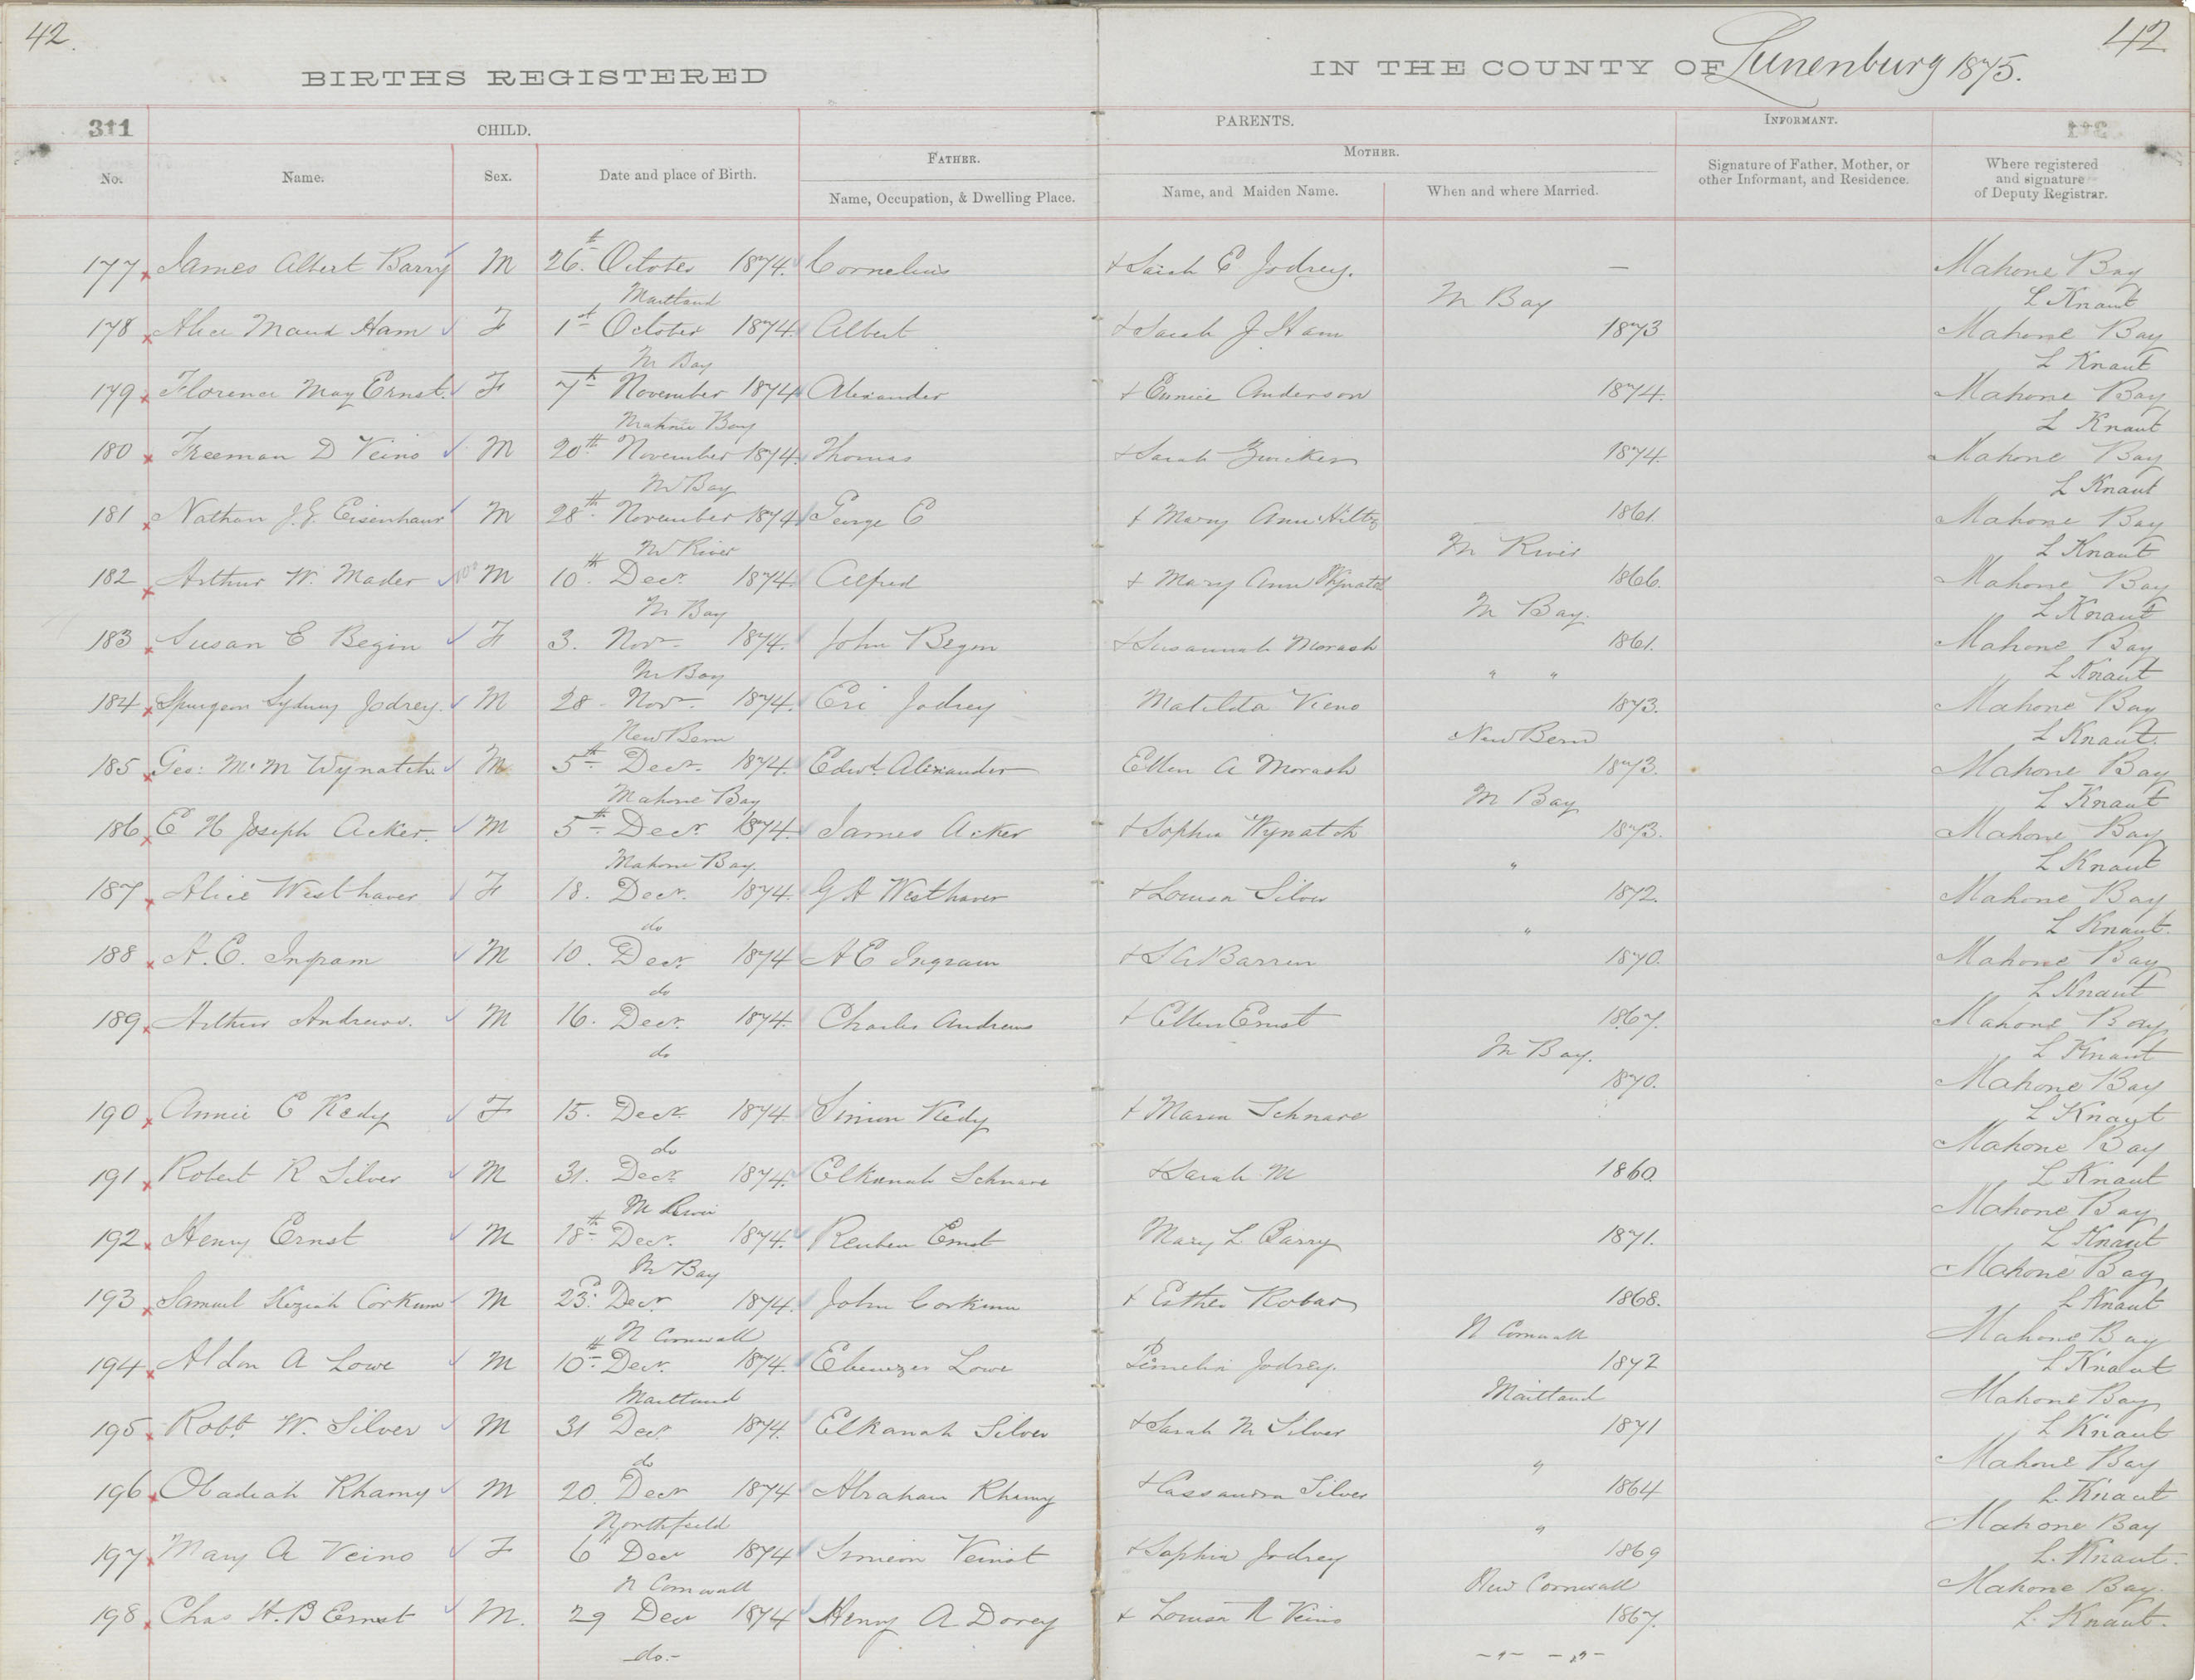 42.
42
BIRTHS REGISTERED
IN THE COUNTY OF Lunenburg 1875.
311
CHILD.
PARENTS.
INFORMANT.
FATHER.
MOTHER.
No.
Name.
Sex.
Date and place of Birth.
Name, Occupation, & Dwelling Place.
Name, and Maiden Name.
When and where Married.
Signature of Father, Mother, or
other Informant, and Residence.
Where registered
and signature
of Deputy Registrar.
177 James Albert Barry M 26th October 1874. Cornelius + Sarah E Jodrey. — Mahone Bay
Maitland M Bay L Knaut
178 Alice Maud Ham F 1st October 1874. Albert + Sarah J Ham 1873 Mahone Bay
M Bay L Knaut
179 Florence May Ernst. F 7th November 1874 Alexander + Eunice Anderson 1874. Mahone Bay
Mahone Bay L Knaut
180 Freeman D Veino M 20th November 1874. Thomas + Sarah Zwicker 1874. Mahone Bay
M Bay L Knaut
181 Nathan J.G. Eisenhaur M 28th November 1874 George C + Mary Ann Hiltz 1861. Mahone Bay
M River M River L Knaut
182 Arthur W. Mader M 10th Decr. 1874. Alfred + Mary Ann Wynatch 1866. Mahone Bay
M Bay M Bay. L Knaut
183 Susan E Begin F 3. Novr 1874. John Begin + Susannah Morash 1861. Mahone Bay
M Bay " " L Knaut
184 Spurgeon Sydney Jodrey. M 28 Novr. 1874. Eri Jodrey Matilda Vieno 1873. Mahone Bay
New Bern New Bern L Knaut.
185 Geo: Mc M Wynatch M 5th Decr. 1874. Edwd. Alexander Ellen A Morash 1873. Mahone Bay
Mahone Bay M Bay L Knaut
186 E H Joseph Acker. M 5th Decr. 1874. James Acker + Sophia Wynatch 1873. Mahone Bay
Mahone Bay " L Knaut
187 Alice Westhaver F 18. Decr. 1874. G A Westhaver + Louisa Silver 1872. Mahone Bay
do " L Knaut.
188 A. E. Ingram M 10. Decr. 1874 A E Ingram + S A Barren 1870. Mahone Bay
do L Knaut
189 Arthur Andrews. M 16. Decr. 1874. Charles Andrews + Ellen Ernst 1867. Mahone Bay
do M Bay. L Knaut
1870. Mahone Bay
190 Annie E Kedy F 15. Decr. 1874 Simion Kedy + Maria Schnare L Knaut
do Mahone Bay
191 Robert R Silver M 31. Decr. 1874. Elkanah Schnare + Sarah M 1860. L Knaut
M River Mahone Bay
192 Henry Ernst M 18th Decr. 1874. Reuben Ernst Mary L Barry 1871. L Knaut
M Bay Mahone Bay
193 Samuel Keziah Corkum M 23d Decr. 1874. John Corkum + Esther Robar 1868. L Knaut
N Cornwall N Cornwall Mahone Bay
194 Aldon A Lowe M 10th Decr. 1874. Ebenezer Lowe Jodrey. 1872 L Knaut
Maitland Maitland Mahone Bay
195 Robt W. Silver M 31 Decr. 1874. Elkanah Silver + Sarah M Silver 1871 L Knaut
do " Mahone Bay
196 Obadiah Rhamy M 20. Decr 1874 Abraham Rhamy + Cassandra Silver 1864 L. Knaut
Northfield " Mahone Bay
197 Mary A Veino F 6th Decr 1874 Simeon Veinot + Sophia Jodrey 1869 L. Knaut.
N Cornwall New Cornwall Mahone Bay.
198 Chas H. B Ernst M. 29 Decr 1874 Henry A Dorey + Louisa A Veino 1867. L. Knaut.
do. -"- -"-